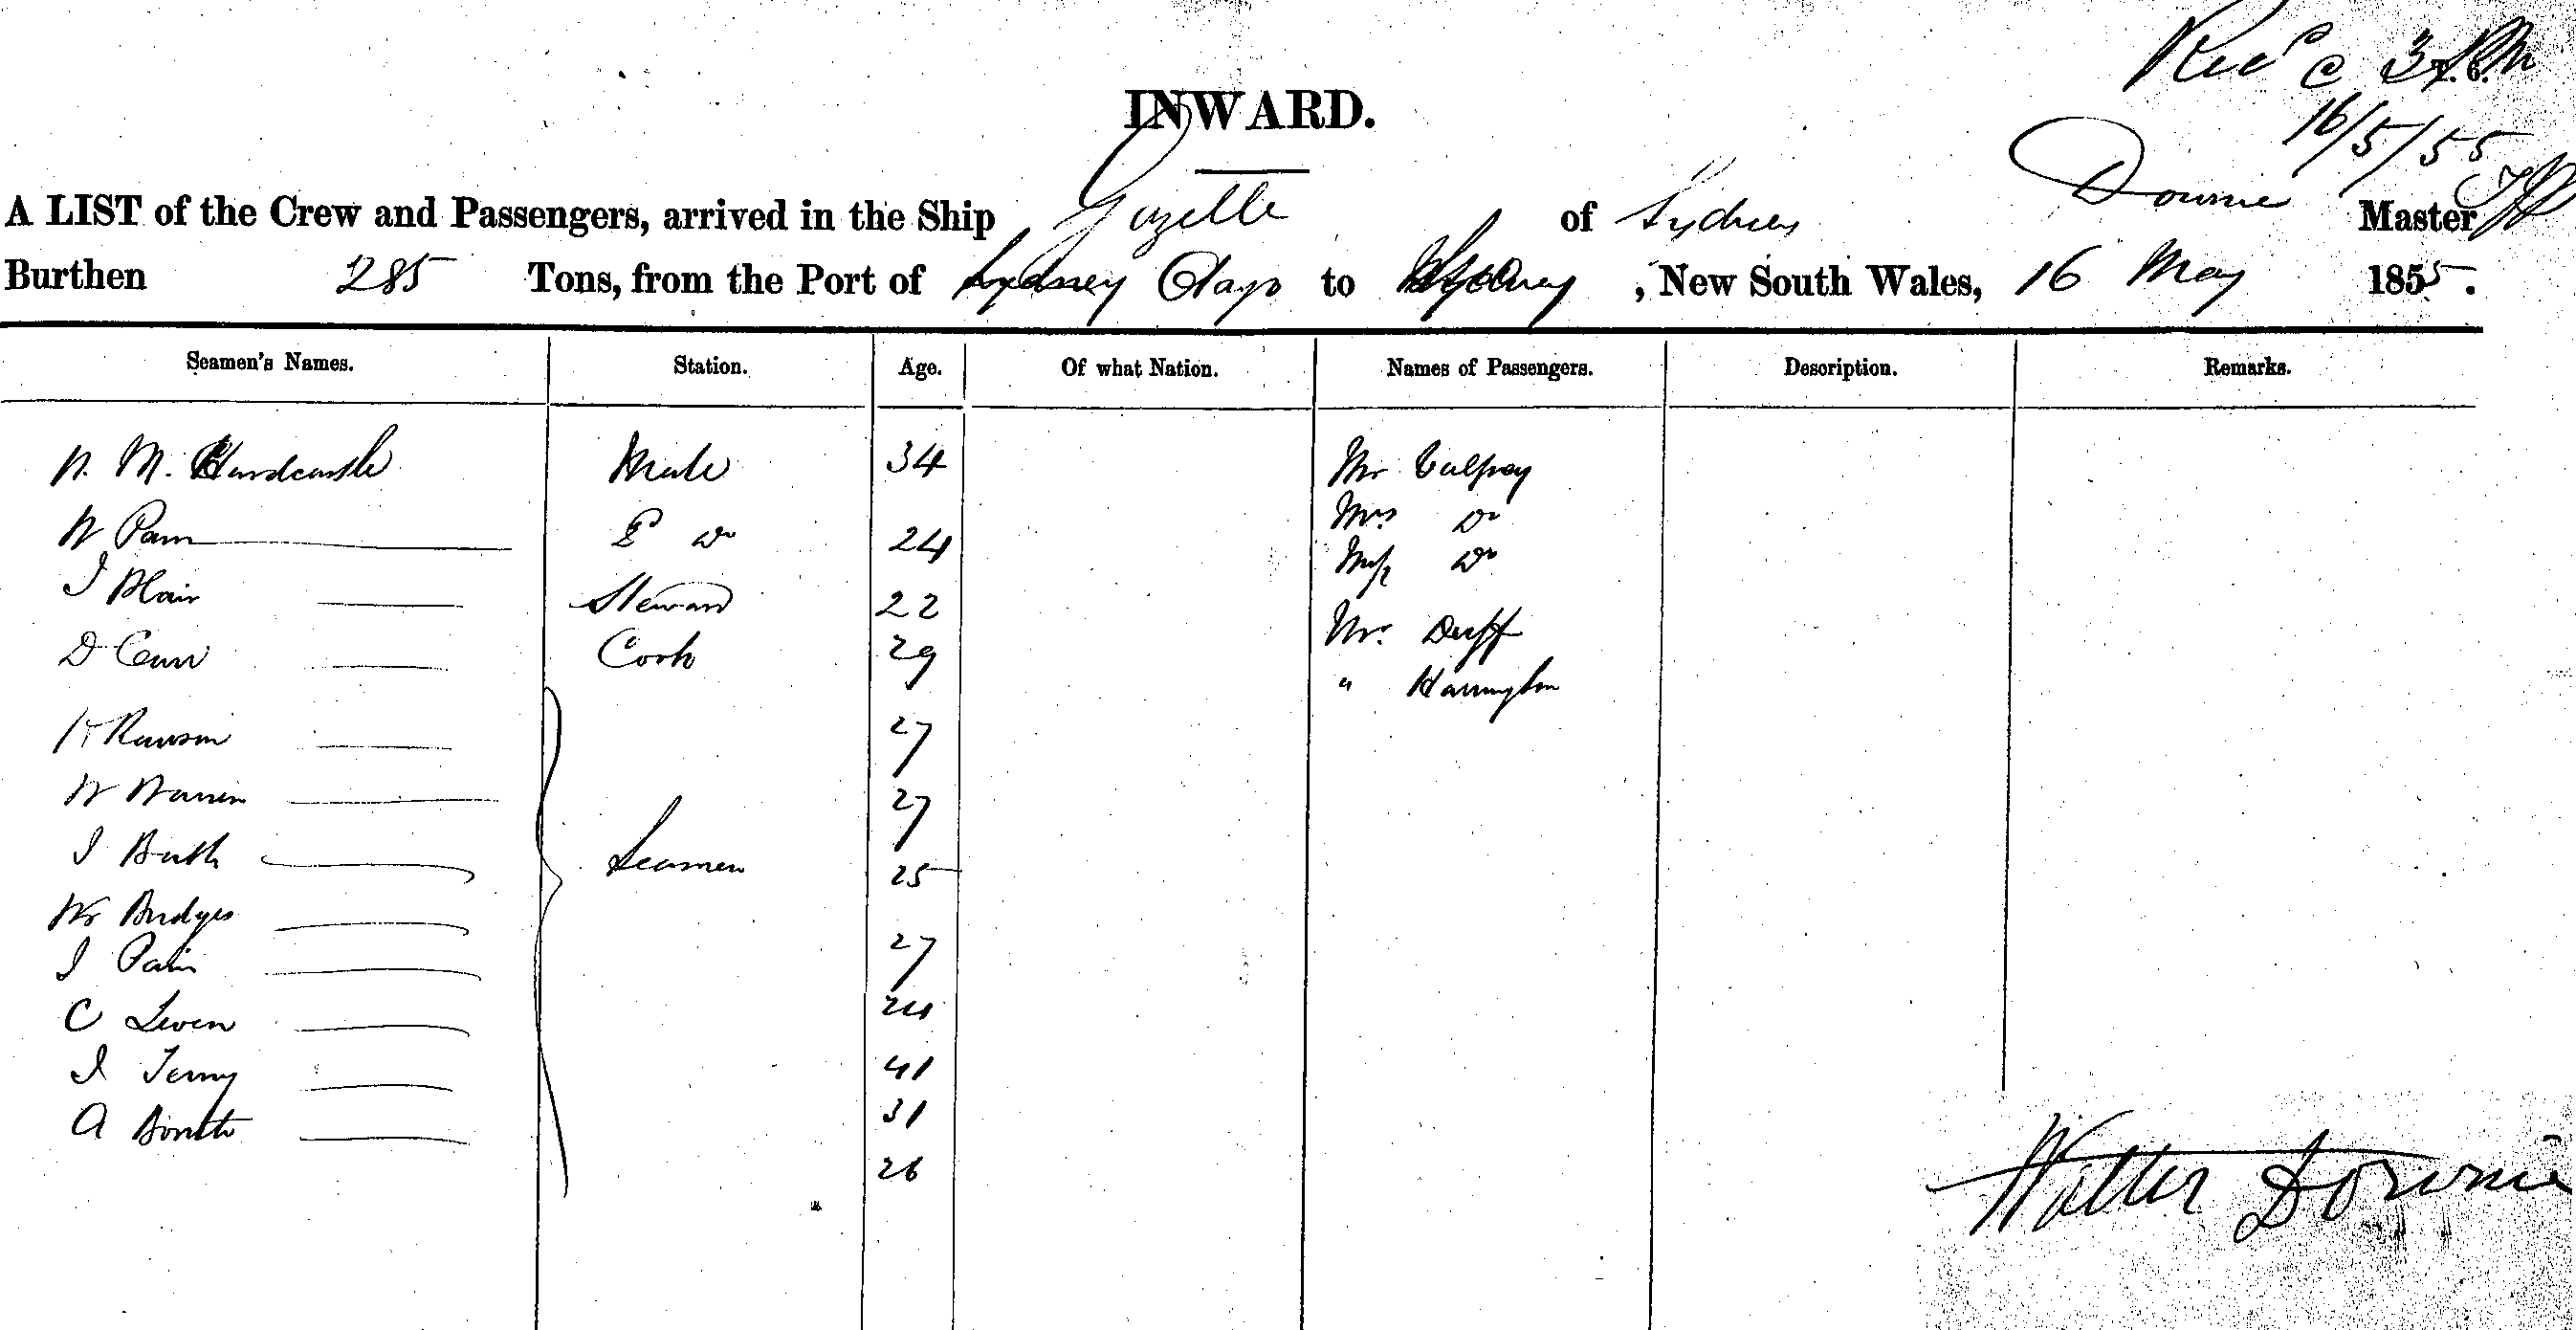 Recd @ 3 P.M
16/5/55
INWARD.
A LIST of the Crew and Passengers, arrived in the Ship Gazelle of Sydney Downie Master
Burthen 285 Tons, from the Port of Otago to Sydney, New South Wales, 16 May 1855.
Seamen's Names. Station. Age. Of what Nation. Names of Passengers. Description. Remarks.
M. Hardcastle Mate 34 Mr Calfray
W Pam 2 Do 24 Mrs Do
Miss Do
J Blair Steward 22 Mr. Duff
D Carr Cook 29 " Harrington
Rawson 27
W Warren 27
J Buth Seamen 25
Wm Bridges 27
J Pain 24
C Leven 41
J Terry 31
A 26
Walter Downie